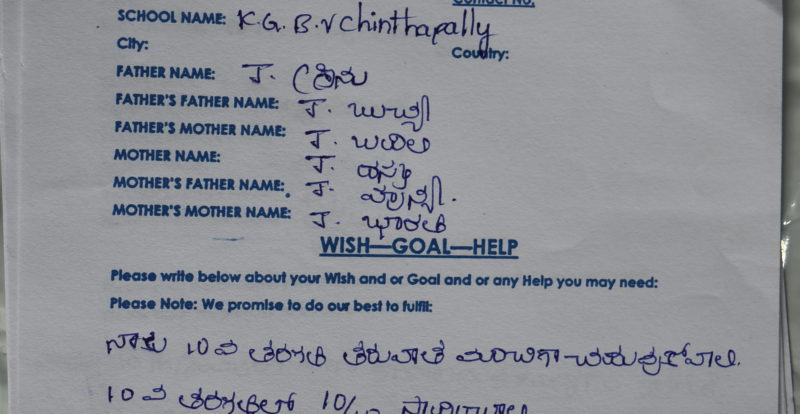 Contact No.
SCHOOL NAME: K.G.B.V Chinthapally
City:
Country:
FATHER NAME: J. శ్రీను
FATHER'S FATHER NAME: J.
FATHER'S MOTHER NAME: J.
MOTHER NAME: J.
MOTHER'S FATHER NAME: J.
MOTHER'S MOTHER NAME: J.
WISH—GOAL—HELP
Please write below about your Wish and or Goal and or any Help you may need:
Please Note: We promise to do our best to fulfil:
నాకు 10వ తరగతి తరువాత మంచిగా చదువుకోవాలి.
10వ తరగతిలో 10/10 సాధించాలి